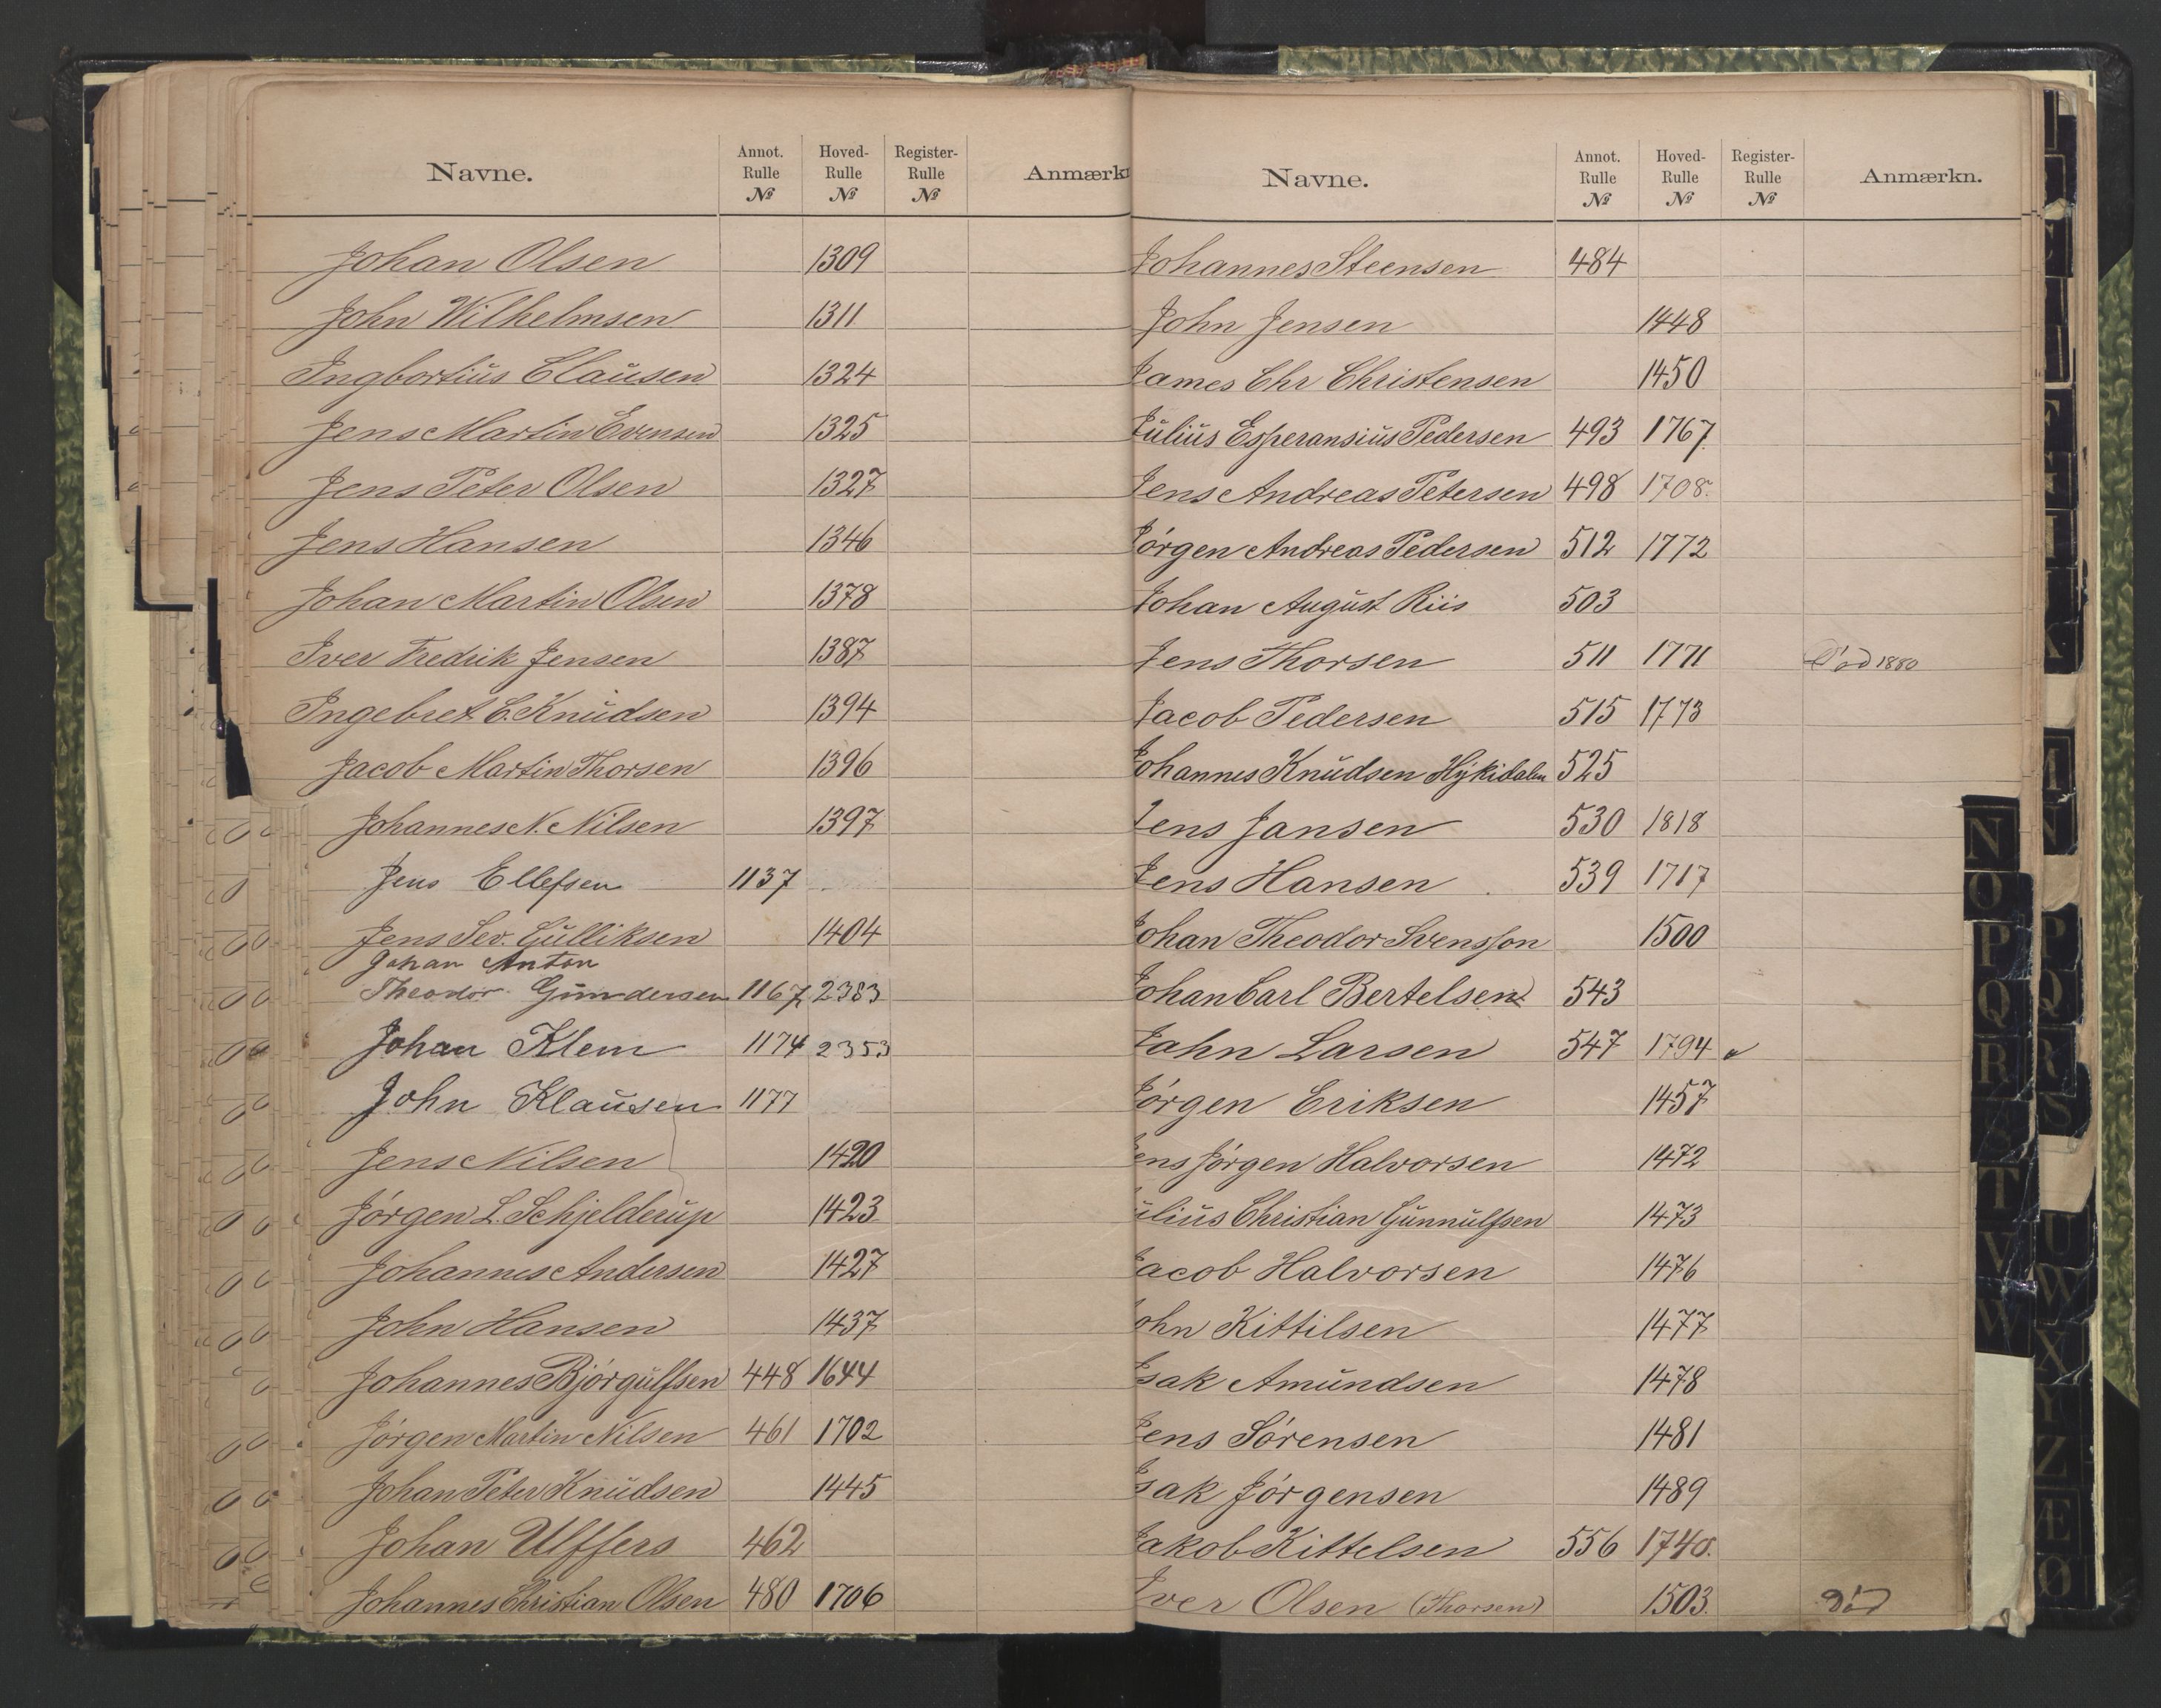 Navne. Annot. Rulle № Hoved- Rulle № Register- Rulle № Anmærkn
Johan Olsen 1309
John Wilhelmsen 1311
Ingbortius Clausen 1324
Jens Martin Evensen 1325
Jens Peter Olsen 1327
Jens Hansen 1346
Johan Martin Olsen 1378
Iver Fredrik Jensen 1387
Ingebret C. Knudsen 1394
Jacob Martin Thorsen 1396
Johannes N. Nilsen 1397
Jens Ellefsen 1137
Jens Sev. Gulliksen 1404
Johan Anton
Theodor Gundersen 1167 2383
Johan Klem 1174 2353
John Klausen 1177
Jens Nilsen 1420
Jörgen L. Schjelderup 1423
Johannes Andersen 1427
John Hansen 1437
Johannes Bjørgulfsen 448 1644
Jörgen Martin Nilsen 461 1702
Johan Peter Knudsen 1445
Johan Ulffers 462
Johannes Christian Olsen 480 1706
Navne. Annot. Rulle № Hoved- Rulle № Register- Rulle № Anmærkn.
Johannes Steensen 484
John Jensen 1448
James Chr Christensen 1450
Julius Esperansius Pedersen 493 1767
Jens Andreas Petersen 498 1708.
Jörgen Andreas Pedersen 512 1772
Johan August Riis 503
Jens Thorsen 511 1771 Död 1880
Jacob Pedersen 515 1773
Johannes Knudsen 525
Jens Jansen 530 1818
Jens Hansen 539 1717
Johan Theodor Svensson 1500
Johan Carl Bertelsen 543
Jahn Larsen 547 1794
Jörgen Eriksen 1457
Jens Jörgen Halvorsen 1472
Julius Christian Gunnulfsen 1473
Jacob Halvorsen 1476
John Kittilsen 1477
Isak Amundsen 1478
Jens Sörensen 1481
Isak Jörgensen 1489
Jakob Kittelsen 556 1740.
Iver Olsen (Thorsen) 1503. Död
N
O
P
Q
R
S
T
V
W
P
Q
R
S
U
W
X
Y
Z
Æ
Ø